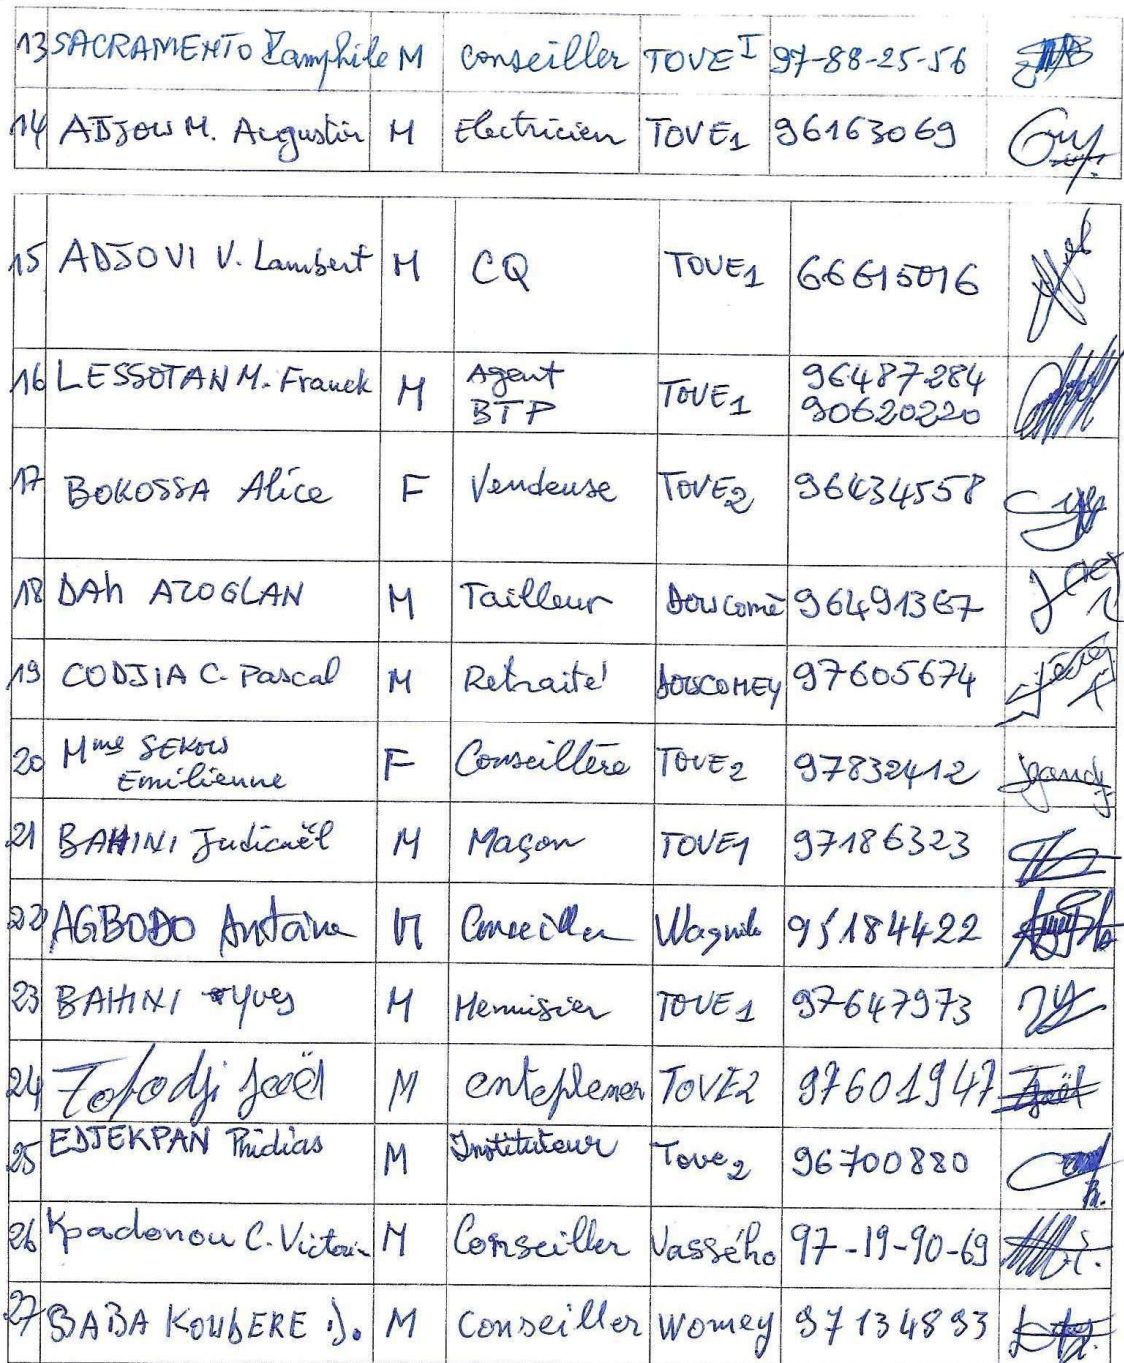 13 SACRAMENTO Pamphile M Conseiller TOVE I 97-88-25-56
14 ADJOU M. Augustin M Electricien TOVE1 96163069
15 ADJOVI V. Lambert M CQ TOVE1 66615016
16 LESSOTAN M. Franck M Agent BTP TOVE1 96487284 90620220
17 BOKOSSA Alice F Vendeuse TOVE2 96434558
18 DAh AZOGLAN M Tailleur Aoucomè 96491367
19 CODJIA C. Pascal M Retraité AOUCOMEY 97605674
20 Mme SEKOU Emilienne F Conseillère TOVE2 97832412
21 BAHINI Judicaël M Maçon TOVE1 97186323
22 AGBODO Antoine M Conseiller 95184422
23 BAHINI Yves M Menuisier TOVE1 97647973
24 Fofodji Joël M TOVE2 97601947
25 EDJEKPAN Phidias M Instituteur Tove2 96700880
26 Kpadonou C. Victorin M Conseiller Vassého 97-19-90-69
27 BABA KOUBERE D. M Conseiller Womey 97134893